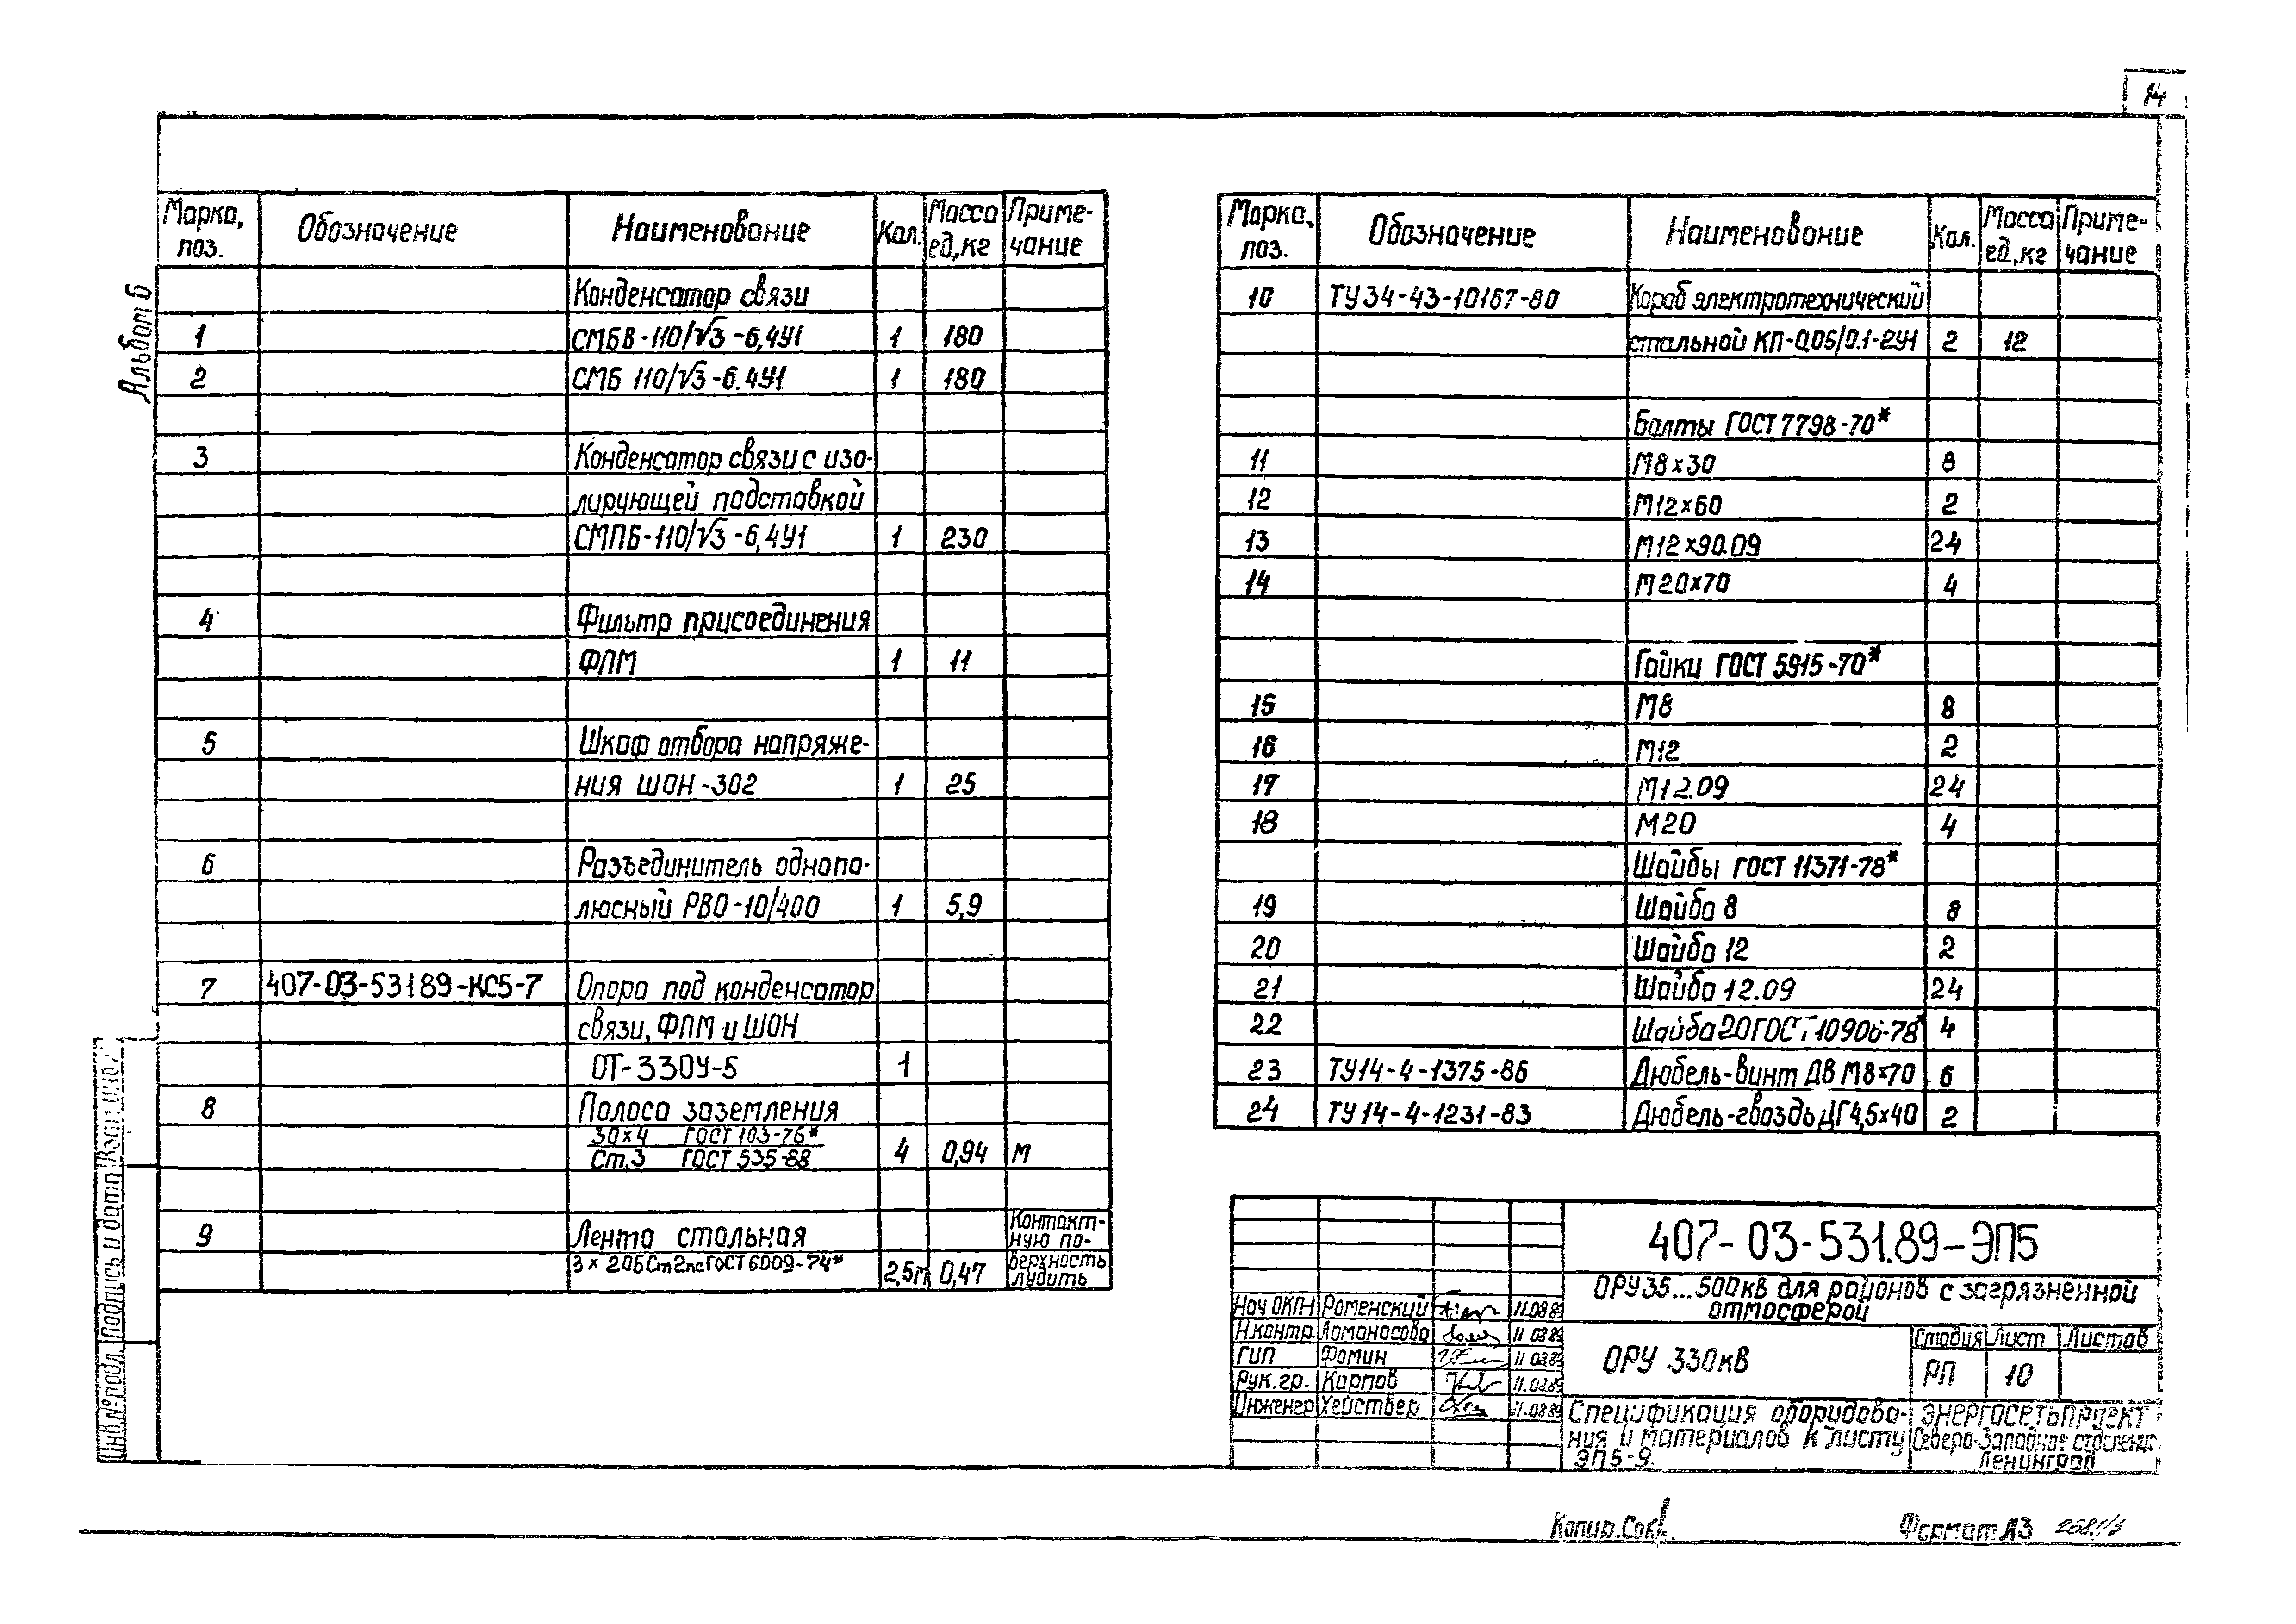 14
Альбом 5
Марка, поз. Обозначение Наименование Кол. Масса ед., кг Примечание
Конденсатор связи
1 СМБВ-110/√3-6,4У1 1 180
2 СМБ 110/√3-6.4У1 1 180
3 Конденсатор связи с изо-
лирующей подставкой
СМПБ-110/√3-6,4У1 1 230
4 Фильтр присоединения
ФПМ 1 11
5 Шкаф отбора напряже-
ния ШОН-302 1 25
6 Разъединитель однопо-
люсный РВО-10/400 1 5,9
7 407-03-53189-КС5-7 Опора под конденсатор
связи, ФПМ и ШОН
ОТ-330У-5 1
8 Полоса заземления
30×4 ГОСТ 103-76*
Ст.3 ГОСТ 535-88 4 0,94 м
9 Лента стальная Контакт-
ную по-
3×20БСт2псГОСТ6009-74* 2,5м 0,47 верхность
лудить
Марка, поз. Обозначение Наименование Кол. Масса ед., кг Примечание
10 ТУ34-43-10167-80 Короб электротехнический
стальной КП-0,05/0.1-2У1 2 12
Болты ГОСТ 7798-70*
11 М8×30 8
12 М12×60 2
13 М12×90.09 24
14 М20×70 4
Гайки ГОСТ 5915-70*
15 М8 8
16 М12 2
17 М12.09 24
18 М20 4
Шайбы ГОСТ 11371-78*
19 Шайба 8 8
20 Шайба 12 2
21 Шайба 12.09 24
22 Шайба 20 ГОСТ 10906-78* 4
23 ТУ14-4-1375-86 Дюбель-винт ДВ М8×70 6
24 ТУ14-4-1231-83 Дюбель-гвоздь ДГ4,5×40 2
407-03-531.89-ЭП5
ОРУ35...500кВ для районов с загрязненной
атмосферой
Нач ОКП-1 Роменский 11.08.89
Н.контр. Ломоносова 11.08.89
ГИП Фомин 11.08.89
Рук.гр. Карпов 11.08.89
Инженер Хействер 11.08.89
ОРУ 330кВ
Стадия Лист Листов
РП 10
Спецификация оборудова-
ния и материалов к листу
ЭП5-9.
ЭНЕРГОСЕТЬПРОЕКТ
Северо-Западное отделение
Ленинград
Инв.№ подл. Подпись и дата
Копир.
Формат А3